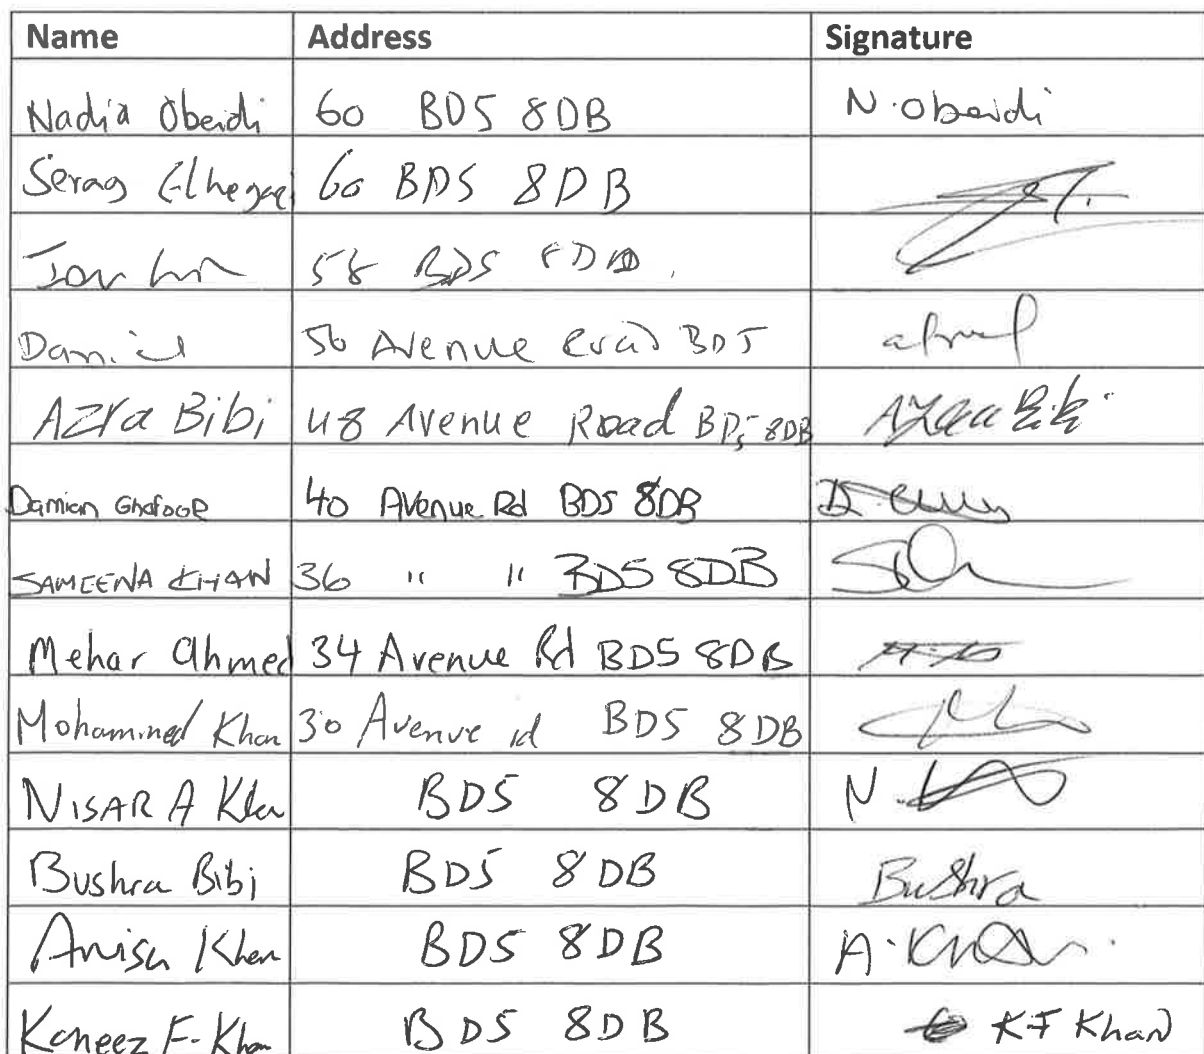 Name Address Signature
Nadia Obeidi 60 BD5 8DB N.Obeidi
Serag 60 BD5 8DB
58 BD5
56 Avenue BD5
Azra Bibi 48 Avenue Road BD5 8DB Azra Bibi
Damian Ghafoor 40 Avenue Rd BD5 8DB
SAMEENA KHAN 36 " " BD5 8DB
Mehar Ahmed 34 Avenue Rd BD5 8DB
Mohammed Khan 30 Avenue rd BD5 8DB
NISAR A Khan BD5 8DB N.
Bushra Bibi BD5 8DB Bushra
Anisa Khan BD5 8DB A. Khan
Kaneez F. Khan BD5 8DB KF Khan